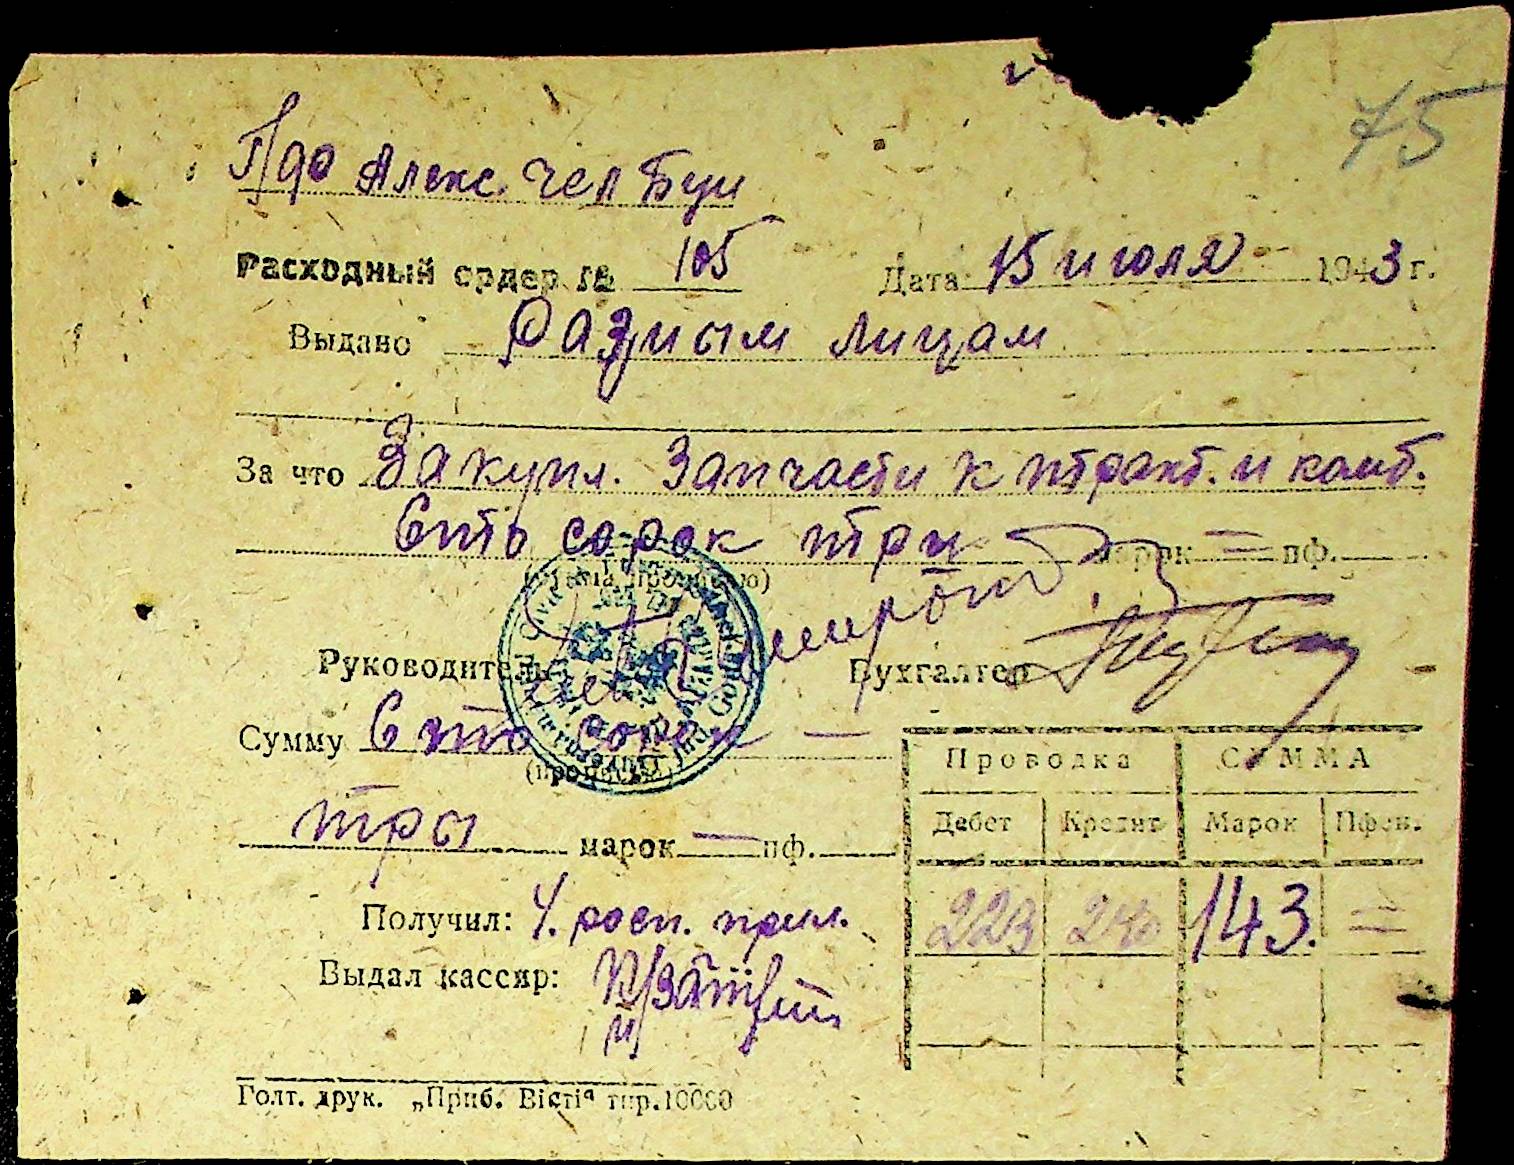 75
Пдо Алекс. чел Бун
Расходный ордер № 105 Дата 15 июля 1943 г.
Выдано Разным лицам
За что Закупл. Запчасти к тракт. и комб.
Сто сорок три марок = пф.
(сумма прописью)
Руководитель Бухгалтер
Сумму Сто сорок —
(прописью)
Проводка СУММА
Дебет Кредит Марок Пфен.
тры марок — пф.
223 240 143. =
Получил: 4. росп. прил.
Выдал кассир:
Голт. друк. „Приб. Вісті“ тир. 10000